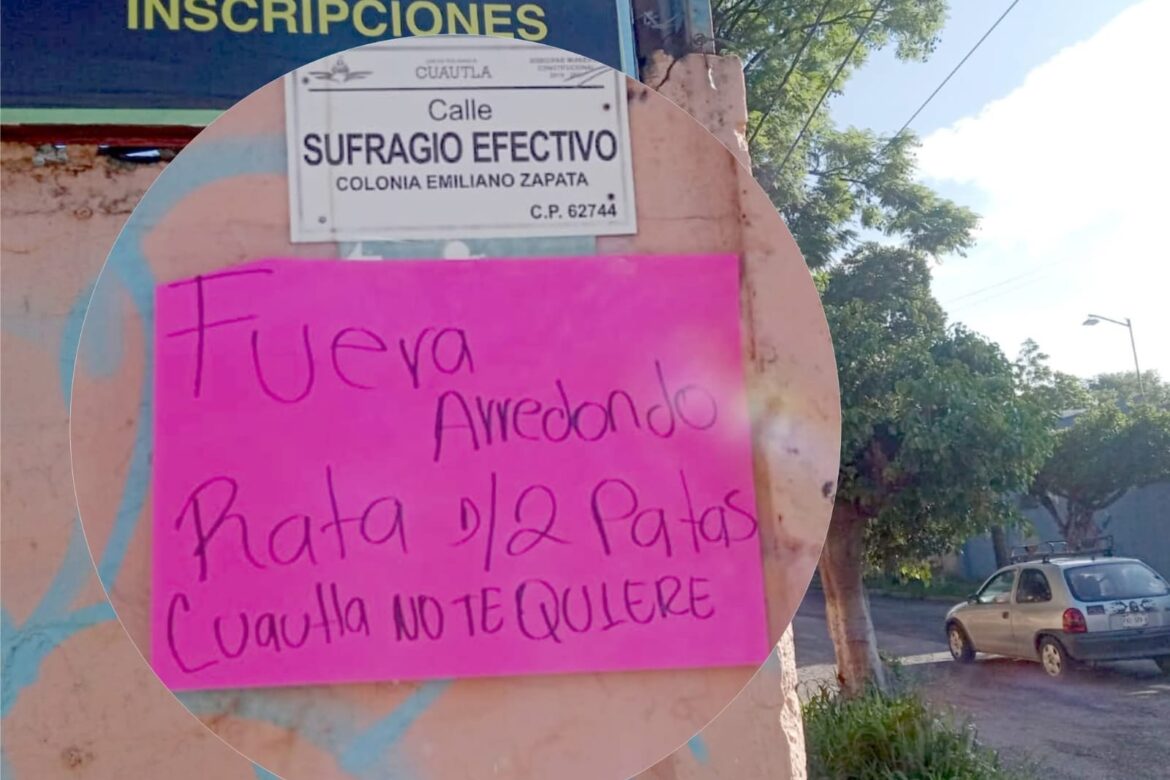 INSCRIPCIONES
CUAUTLA
Calle
SUFRAGIO EFECTIVO
COLONIA EMILIANO ZAPATA
C.P. 62744
Fuera
Arredondo
Rata D/2 Patas
Cuautla NO TE QUIERE